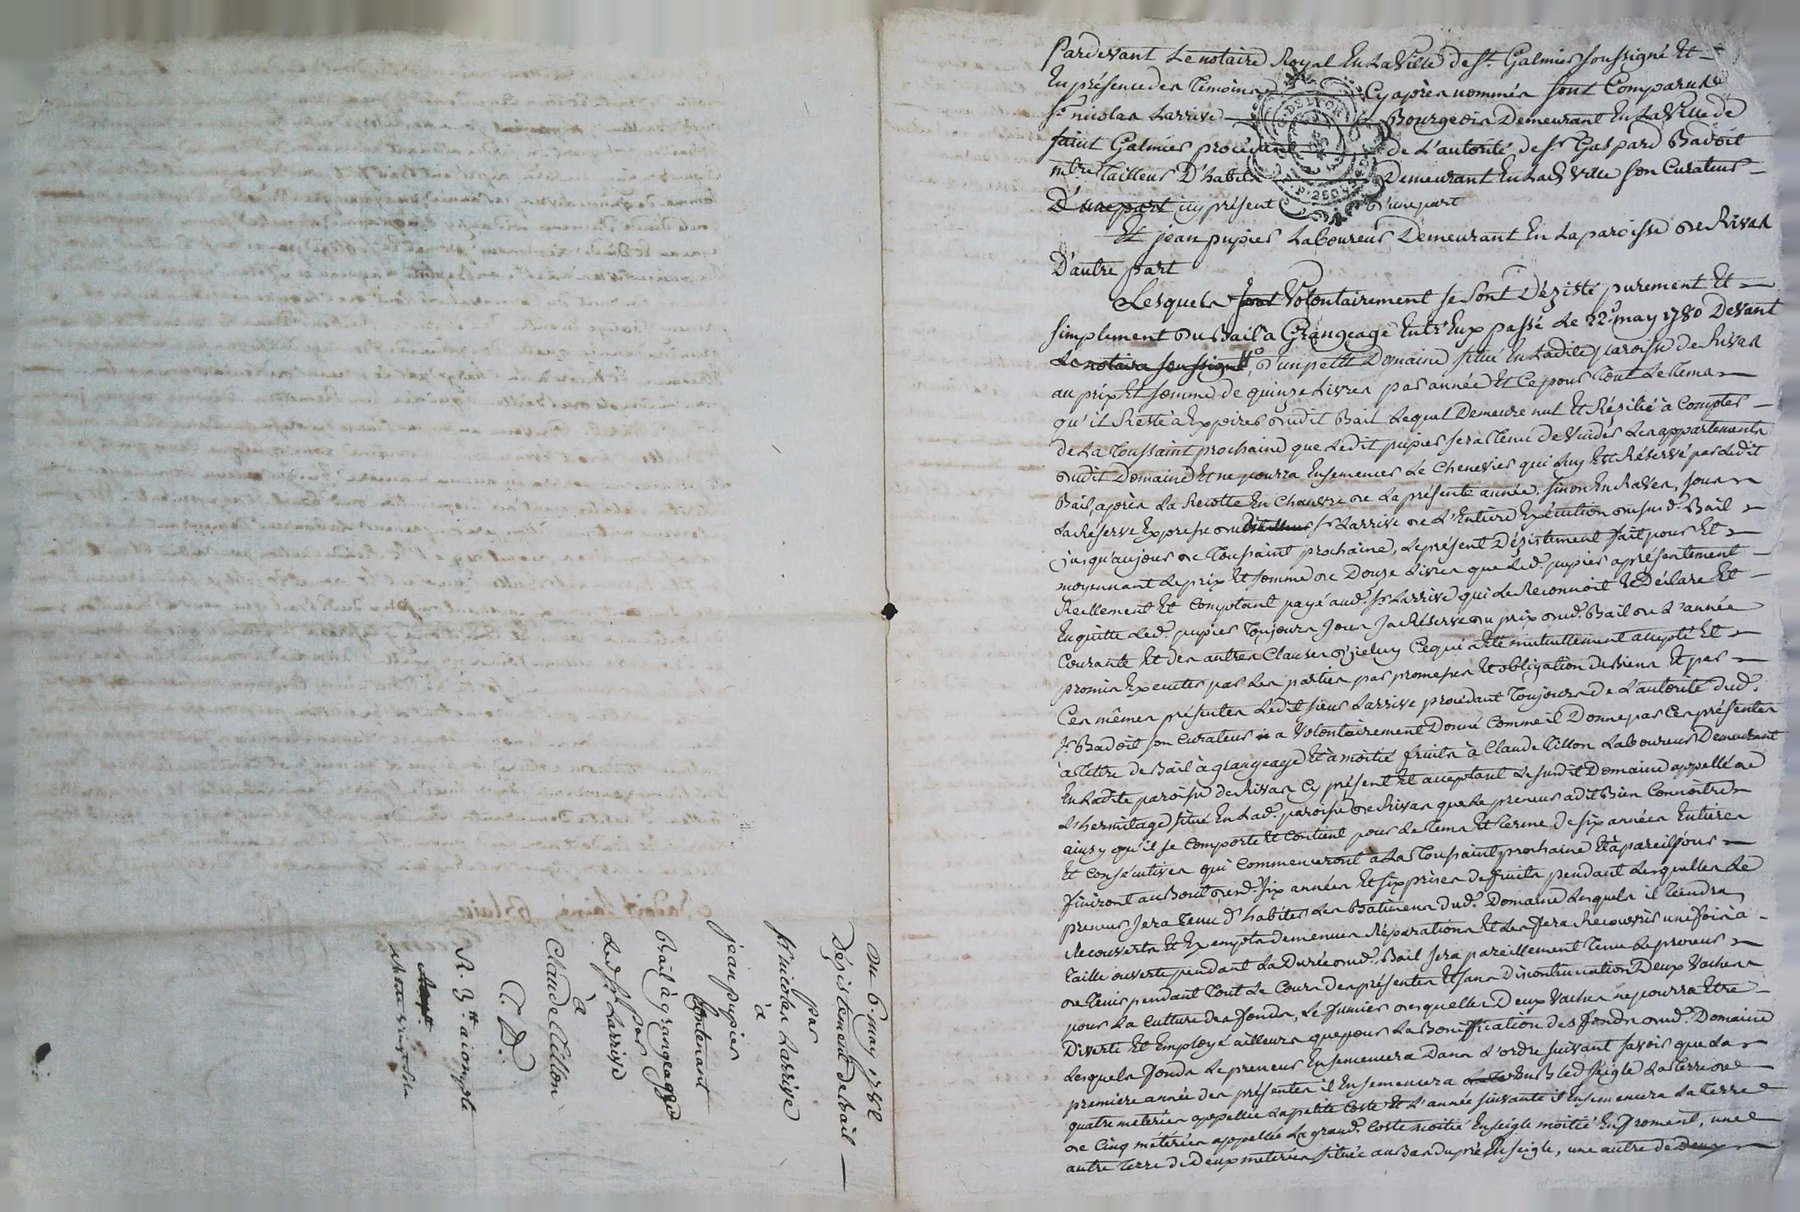 Pardevant Le notaire Royal En La Ville de St. Galmier soussigné Et
En présence des Témoins Cy après nommés sont Comparus
Sr. nicolas Larrive Bourgeois Demeurant En La Ville de
saint Galmier procédant de L'autorité de Sr. Gaspard Badoit
mtre Tailleur D'habits Demeurant En Lad. Ville son Curateur
D'une part icy présent D'une part
Et jean pupier Laboureur Demeurant En La paroisse de Rivas
D'autre part
Lesquels sont Volontairement se sont Dézisté purement Et
simplement du Bail à Grangeage Entr'Eux passé Le 22e. may 1780 Devant
Le notaire soussigné, D'un petit Domaine situé En Ladite paroisse de Rivas
au prix Et somme de quinze Livres par année Et Ce pour Tout Le Tems
qu'il Reste à Expirer dudit Bail Lequel Demeure nul Et Résilié à Compter
de La Toussaint prochaine que Ledit pupier sera Tenu de Vuider Les appartements
dudit Domaine Et ne pourra Ensemencer Le Chenevier qui Luy Est Réservé par Ledit
Bail, après La Recolte En Chanvre de La présente année, sinon En Raves, sous
La Réserve Expresse du Sr. Larrive de L'Entière Exécution du susd. Bail
jusqu'au jour de Toussaint prochaine, Le présent Dézistement fait pour Et
moyennant Le prix Et somme de Douze Livres que Led. pupier a présentement
Reellement Et Comptant payé aud. Sr. Larrive qui Le Reconnoit Et Déclare Et
En quitte Led. pupier Toujours sous La Réserve du prix dud. Bail de L'année
Courante Et des autres Clauses D'iceluy Ce qui a Eté mutuellement accepté Et
promis Executer par Les parties par promesses Et obligation de Biens Et par
Ces mêmes présentes Ledit sieur Larrive procédant Toujours de L'autorité dud.
Sr. Badoit son Curateur a Volontairement Donné Comme il Donne par Ces présentes
à Titre de Bail à grangeage Et à moitié fruits à Claude Tillon Laboureur Demeurant
En Ladite paroisse de Rivas Cy présent Et acceptant Le susdit Domaine appellé de
L'hermitage situé En Lad. paroisse de Rivas que Le preneur a dit Bien Connoitre
ainsy qu'il se Comporte Et Contient pour Le Tems Et Terme de six années Entières
Et Consécutives qui Commenceront à La Toussaint prochaine Et à pareil jour
finiront au Bout desd. six années Et six prises de fruits pendant Lesquelles Le
preneur sera Tenu d'habiter Les Bâtimens dud. Domaine Lesquels il Tiendra
Recouverts Et Exempts de menues Réparations Et Les fera Recouvrir une fois à
Taille ouverte pendant La Durée dud. Bail sera pareillement Tenu Le preneur
de Tenir pendant Tout Le Cours des présentes Et sans Discontinuation Deux Vaches
pour La Culture des fonds, Le fumier desquelles Deux Vaches ne pourra Etre
Diverti Et Employé ailleurs que pour La Bonification des fonds dud. Domaine
Lesquels fonds Le preneur Ensemencera Dans L'ordre suivant savoir que La
première année des présentes il Ensemencera En Bled seigle La Terre de
quatre meterées appellée La petite Coste Et L'année suivante il Ensemencera La Terre
de Cinq météres appellée La grand. Coste moitié En seigle moitié En froment, une
autre Terre de Deux meterées située au Bas du pré En seigle, une autre de Deux
Du 6. may 1782
Dézistement de Bail
par
Sr. nicolas Larrive
à
jean pupier
Contenant
Bail à grangeage
par
Led. Sr. Larrive
à
Claude Tillon
C. D.
R. 3tt acompte